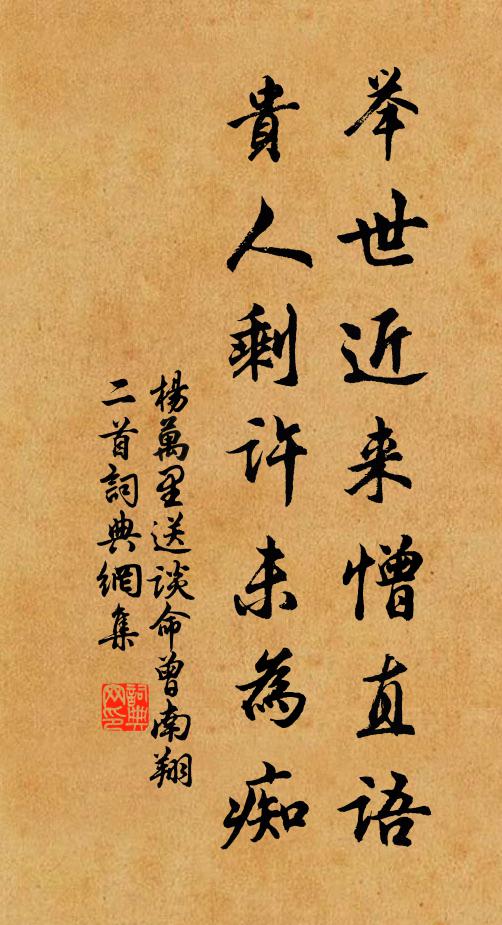 举世近来憎直语
貴人剩许未為痴
楊萬里送談命曾南翔
二首詞典網集
詞典
网印